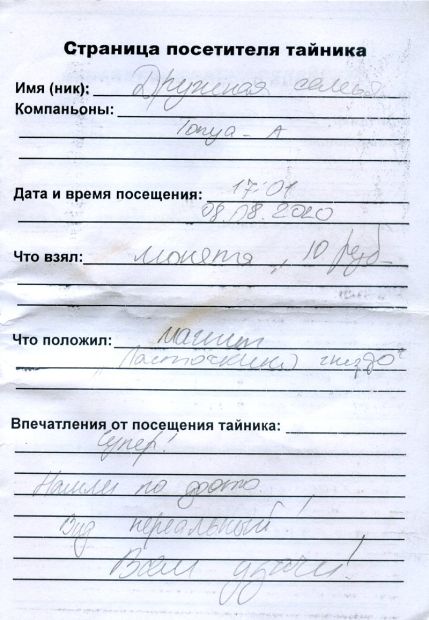 Страница посетителя тайника
Имя (ник): Дружная семья
Компаньоны:
Tonya - A
Дата и время посещения: 17:01
08.08.2020
Что взял: монета, 10 руб
Что положил: магнит
"Ласточкино гнездо"
Впечатления от посещения тайника:
Супер!
Нашли по фото
Вид нереальный!
Всем удачи!